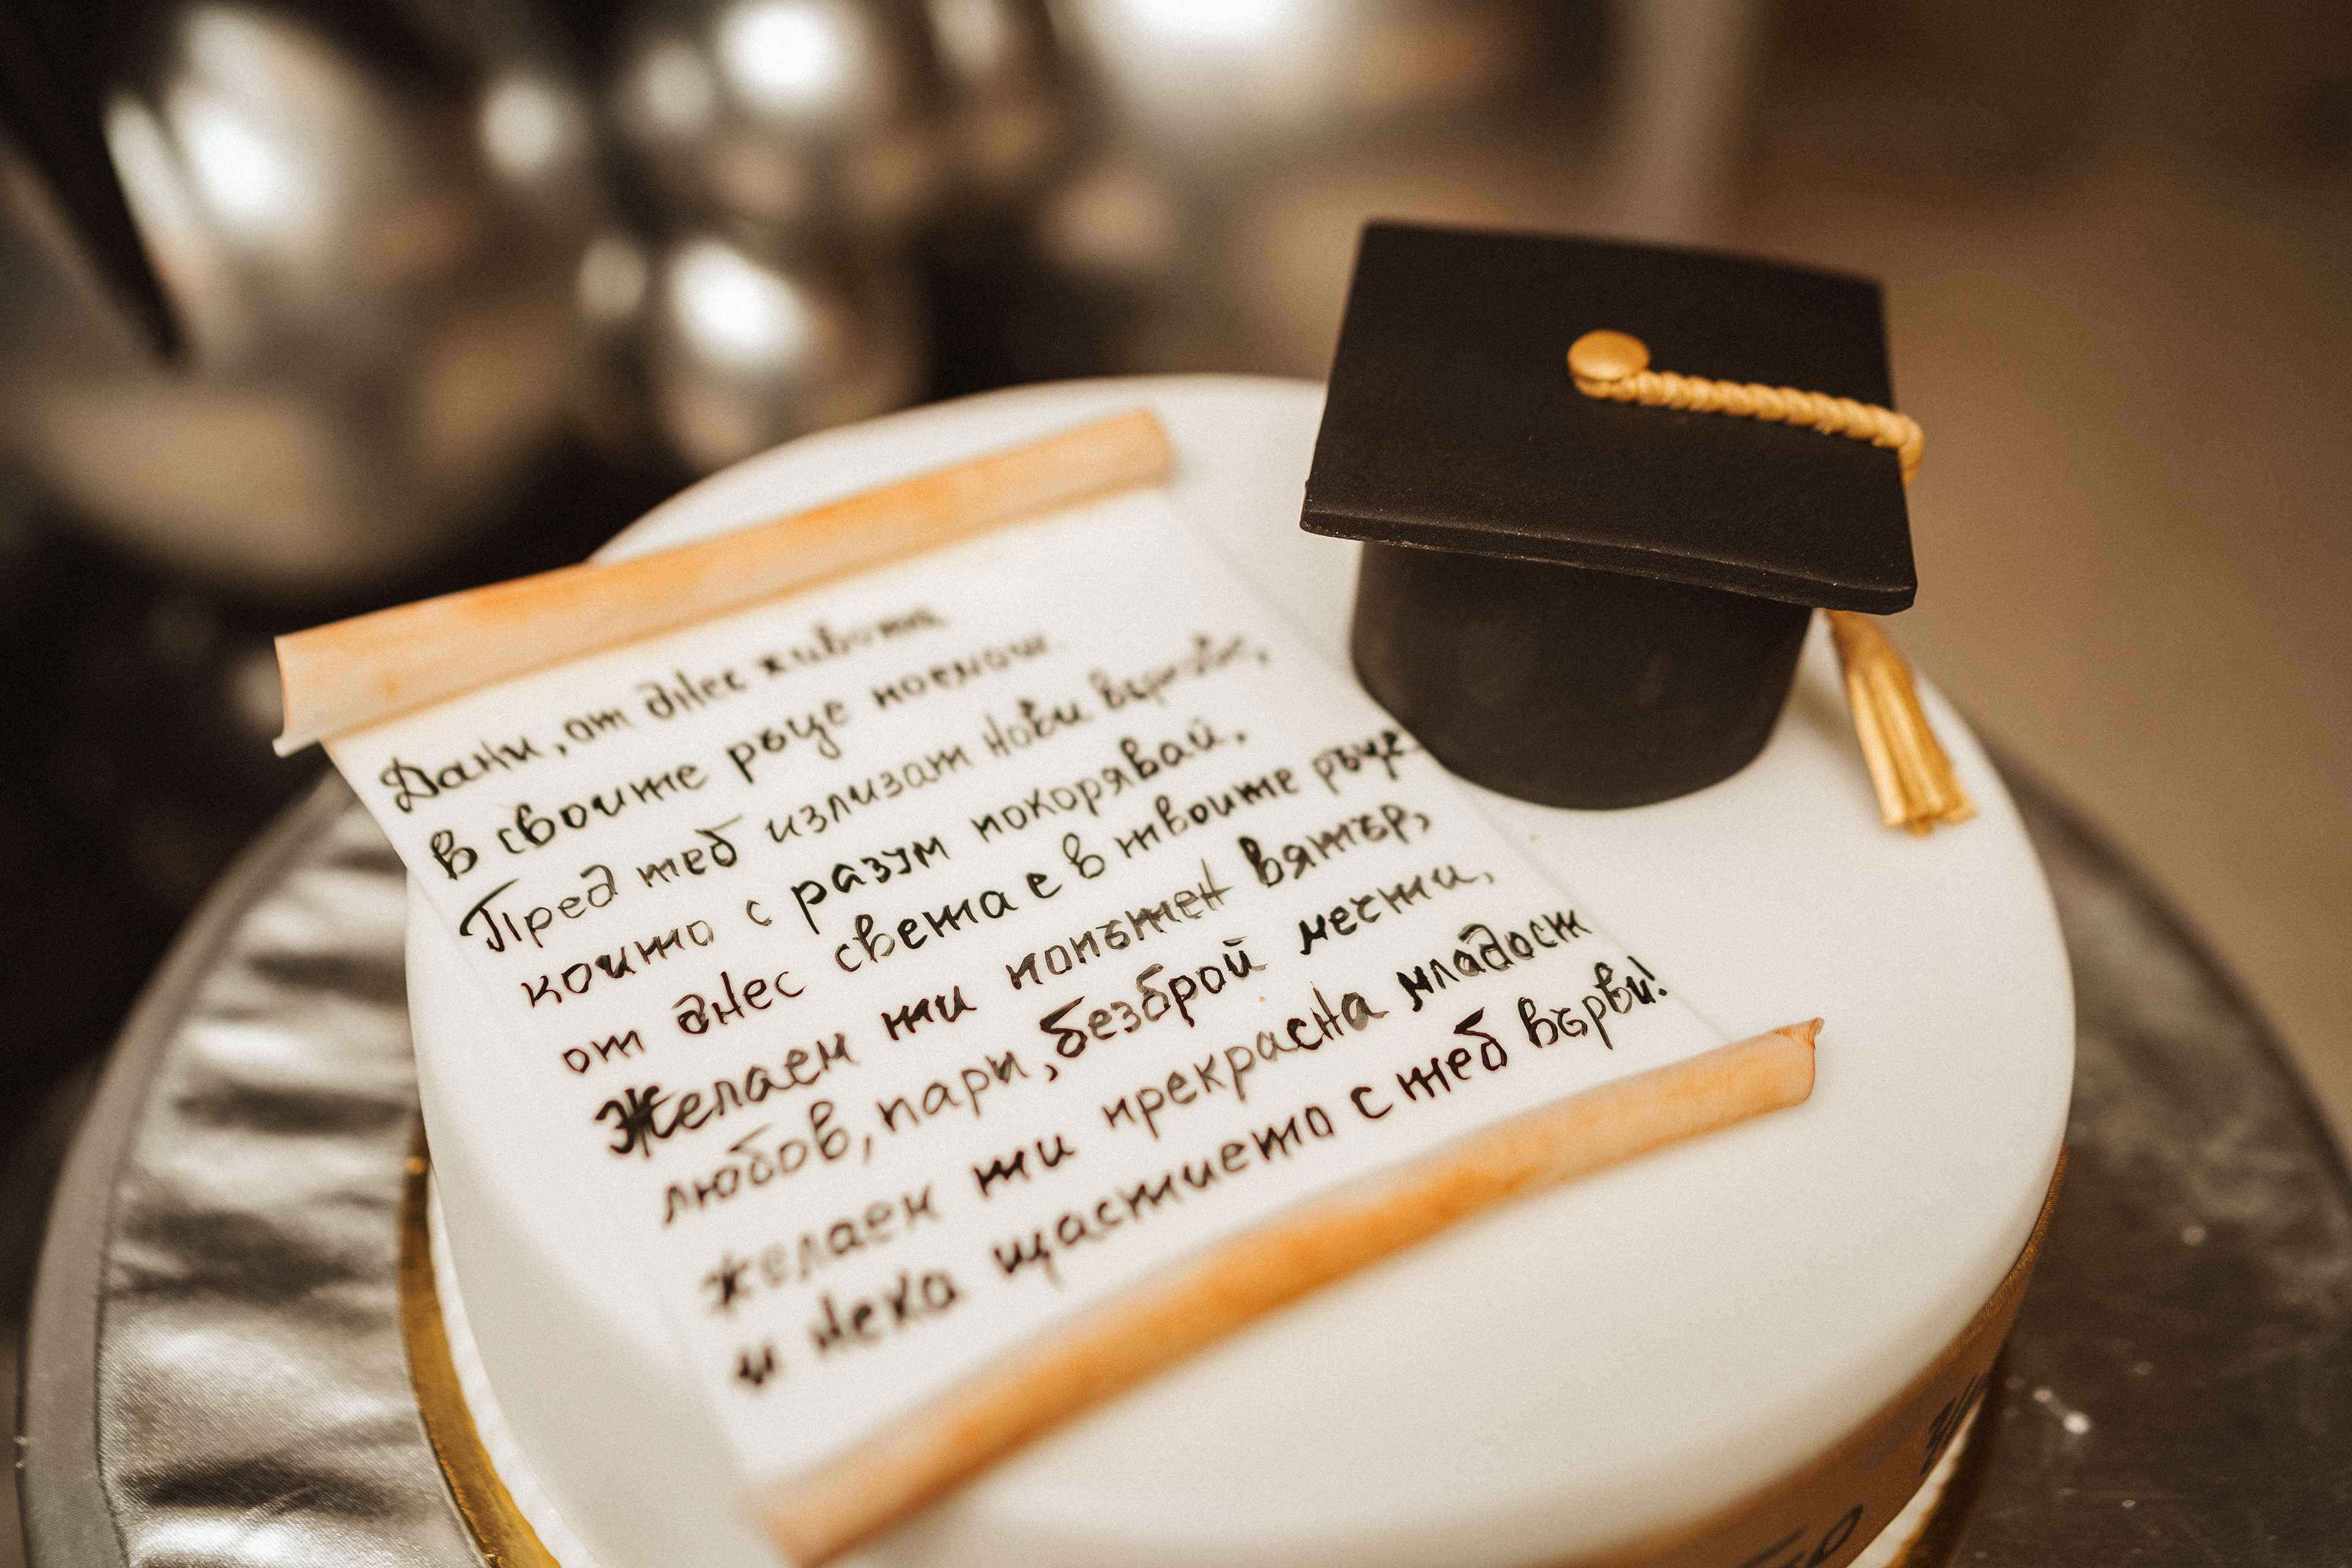 Дани, от днес живота
в своите ръце поемаш.
Пред теб излизат нови върхове,
които с разум покорявай,
от днес света е в твоите ръце.
Желаем ти попътен вятър,
любов, пари, безброй мечти,
желаем ти прекрасна младост
и нека щастието с теб върви!